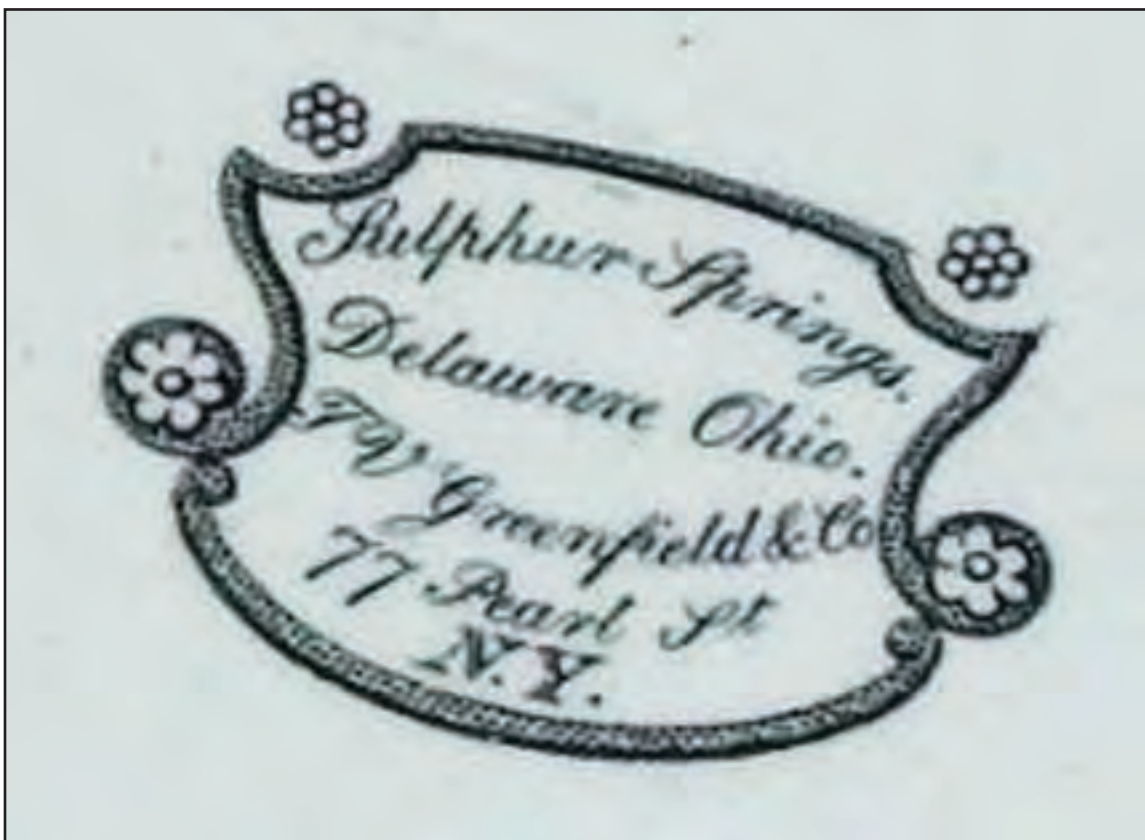 Sulphur Springs.
Delaware Ohio.
Greenfield & Co
77 Pearl St
N.Y.